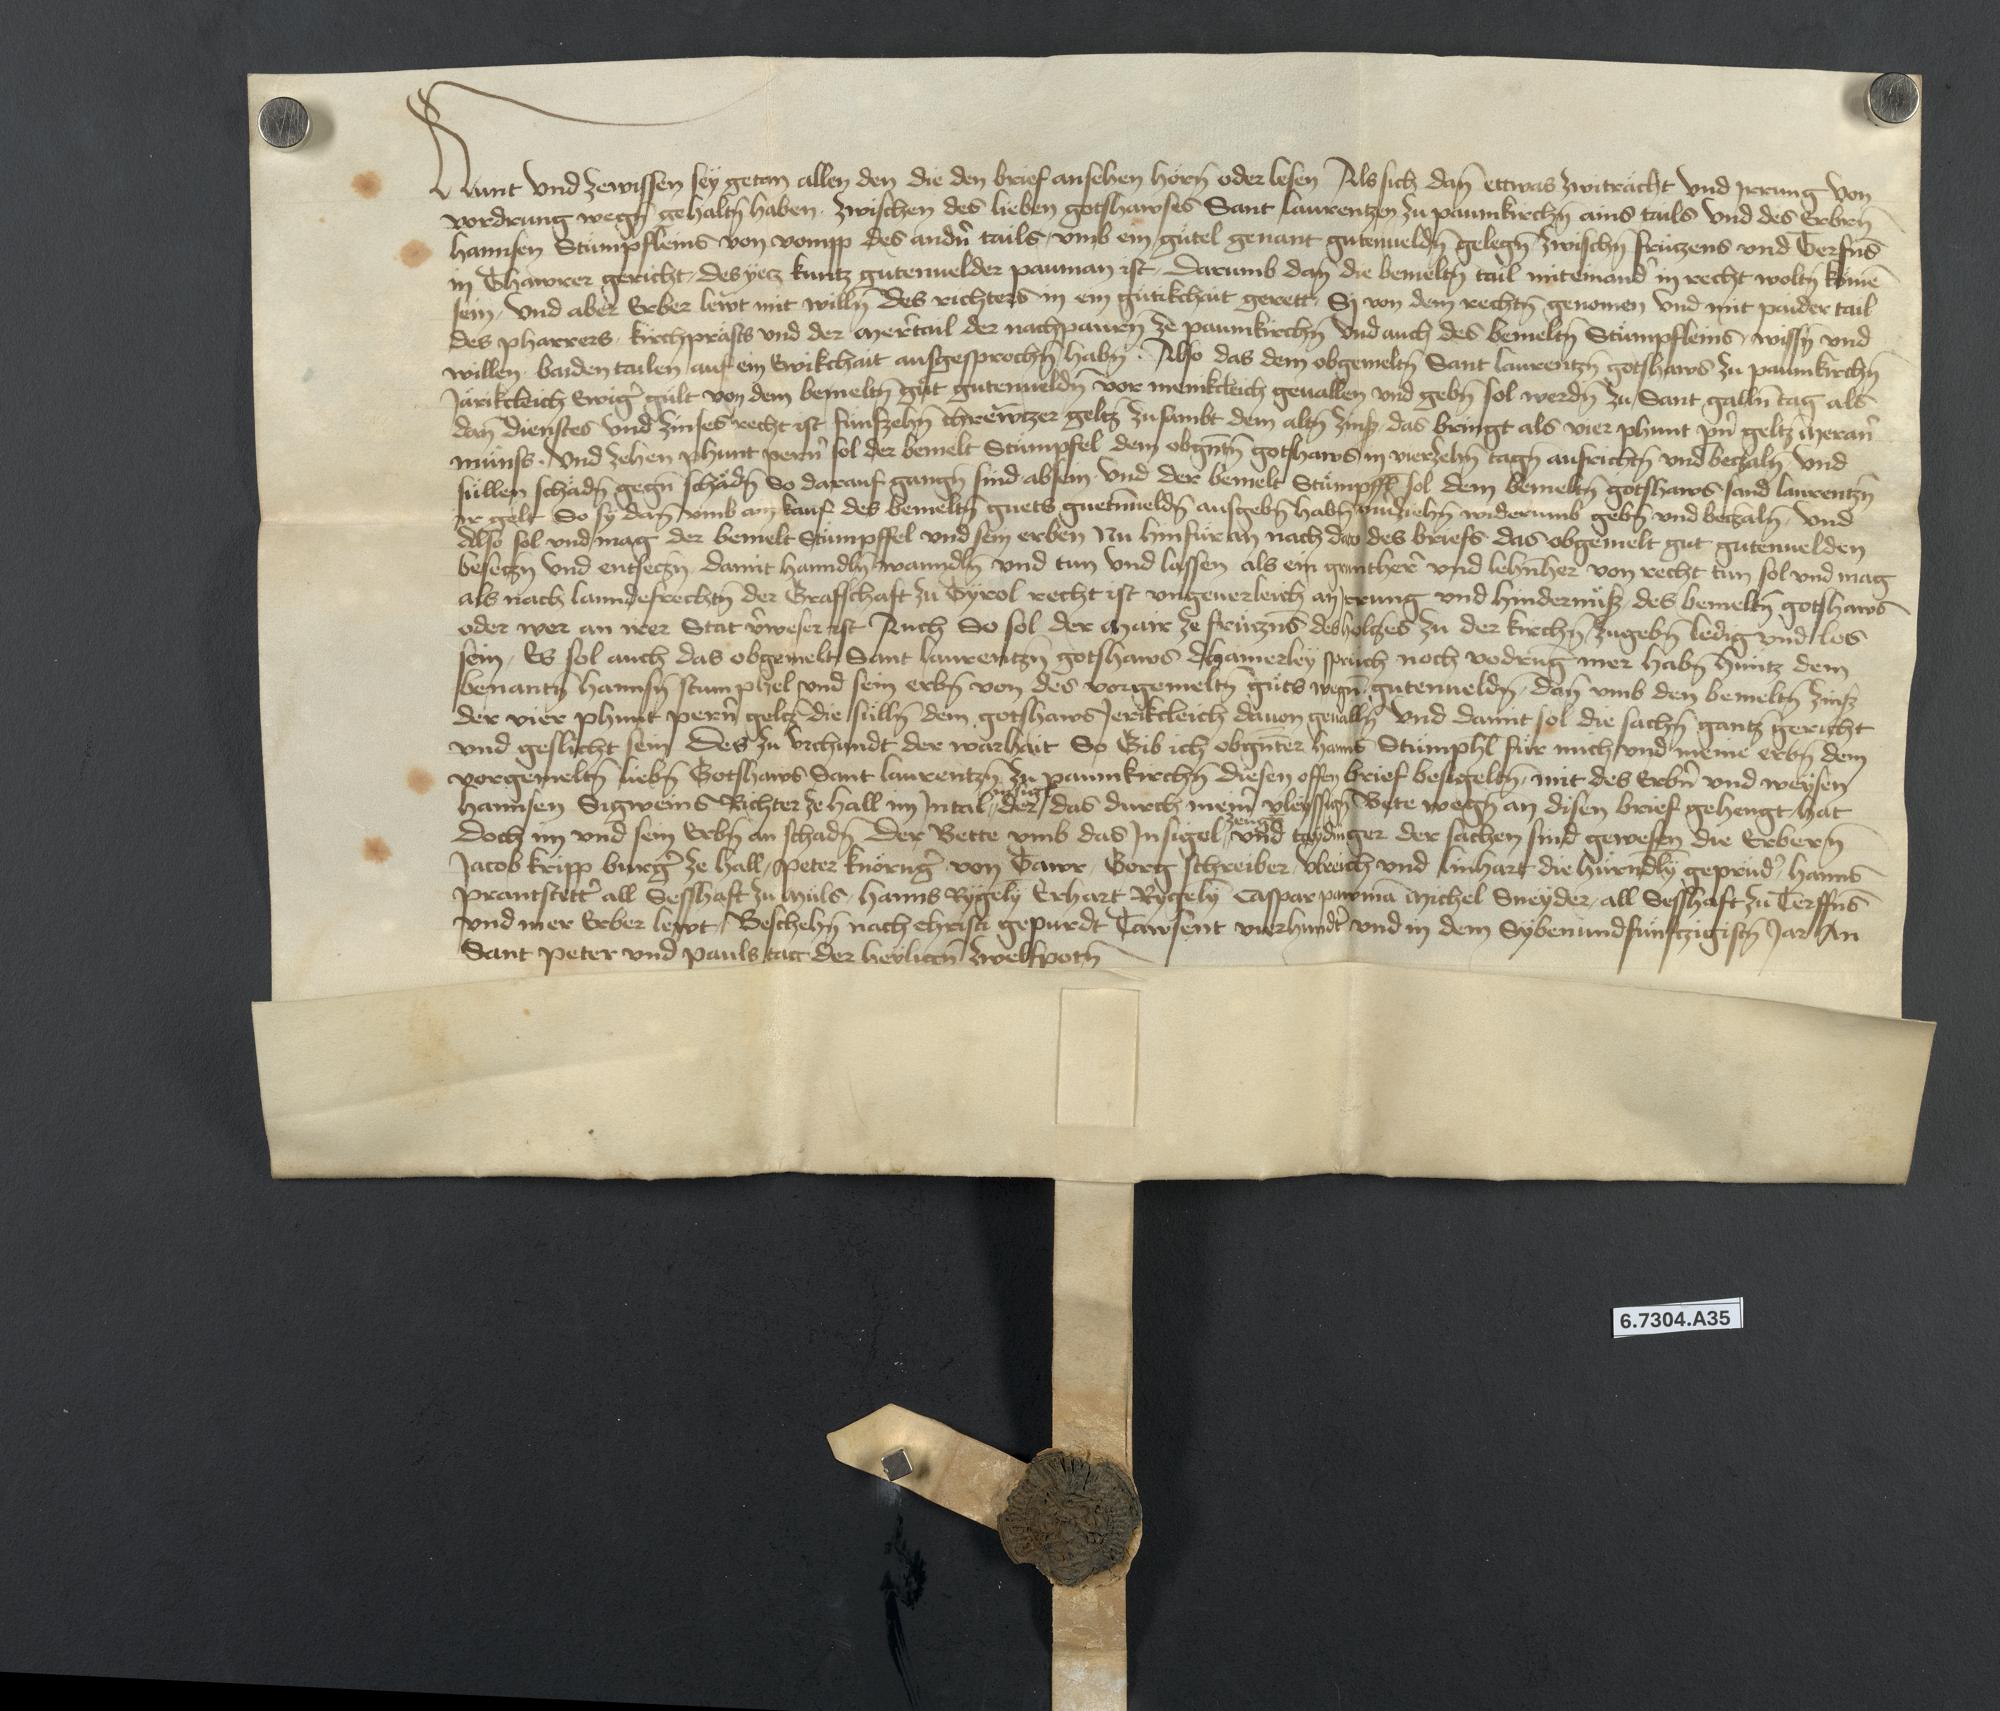 Kunt und zewissen sey getan allen den die den brief ansehen hörn oder lesen Als sich dan ettwas zwiträcht und jrrung von
vordrung wegn gehaltn haben zwischen des lieben gotshawses Sant laurentzen zu paumkirchn ains tails und des Erbrn
hannsen Stümpfleins von vomp des andn tails umb ein gütel genant gutenueldn gelegn zwischn früczens und Terfns
in Thawrer gericht des yecz kuntz gutenuelder pauman ist Darumb dan die bemeltn tail miteinand in recht woltn komen
sein und aber Erber lewt mit willn des richters in ein gütikchait gerett Sy von dem rechtn genomen und mit paider tail
des pharrers kirchpräfts und der merctail der nachpaurn ze paumkirchn und auch des bemeltn Stümpfleins wissn und
willen baiden tailen auf ein Ewikchait ausgesprochn habn Also das dem obgemeltn Sant laurentzn gotshaws zu paumkirchn
Järikcleich Ewigr gült von dem bemeltn gut gutenueldn vor menikcleich geuallen und gebn sol werdn zu Sant galln tag als
dan dienstes und zinses recht ist fünfzehn chrewtzer geltz zusambt dem altn zinss das bringt als vier phunt pn geltz meran
münss und zehen phunt pern sol der bemelt Stümpfel dem obgntn gotshaws in vierzehn tagn ausrichtn und beczaln und
süllen schädn gegn schädn So darauf gangn sind absein und der bemelt Stümpffl sol dem bemeltn gotshaws sand laurentzn
ir gelt So sy dan umb ain kauf des bemeltn guets guetnueldn ausgebn habn widerumb gebn und beczaln und
Also sol und mag der bemelt Stümpffel und sein erben Nu hinfür an nach dato des briefs das obgemelt gut gutenuelden
beseczn und entseczn damit hanndln wanndln und tun und lassen als ein grunther und lehnher von recht tun sol und mag
als nach lanndesrechtn der Graffschaft zu Tyrol recht ist ungeuerleich an jrrung und hindernüss des bemeltn gotshaws
oder wer an irer Stat vweser ist Auch So sol der mair ze früczns des holtzes zu der kirchn zugebn ledig und los
sein Es sol auch das obgemelt Sant laurentzn gotshaws dhainerley spruch noch vodrung mer habn hintz dem
benantn hannsn stumphel und sein erbn von des vorgemeltn güts wegn gutenueldn dan umb den bemeltn zinss
der vier phunt pern geltz die sülln dem gotshaws Jerikcleich dauon geualln und damit sol die sachn gantz gericht
und geslicht sein Des zu urchundt der warhait So Gib ich obgnter hanns Stümphl für mich und meine erbn dem
vorgemeltn liebn Gotshaws Sant laurentzn zu paumkirchn diesen offen brief besigeltn mit des Erbn und weysen
hannsen Sigweins Richter ze hall im Jntal insigl der das durch meinr vleyssign Bete wegn an disen brief gehengt hat
doch im und sein Erbn an schadn Der Bette umb das Jnsigel zeugn und taydinger der sachen sind gewesen die Erbern
Jacob kripp burgr ze hall Peter knöringr von Tawr Gorg schreiber Ulreich und linhart die hürndly geprüd hanns
prantstettr all Sesshaft zu Müls hanns Rygely Erhart Rygely Caspar pawman Michel Sneyder all Sesshaft zu Terffns
und mer Erber lewt Beschehn nach christi gepurdt Tawsent vierhundt und in dem Sybenundfünftzigistn Jar An
Sant Peter und Pauls tag der heyligen zwelfpotn
6.7304.A35